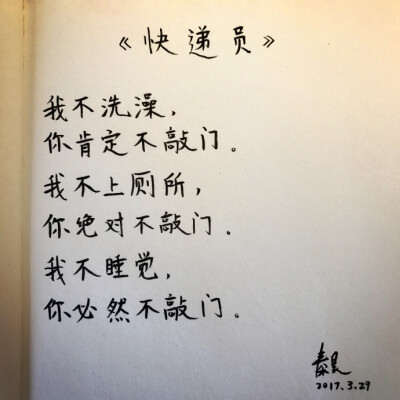 《快递员》
我不洗澡，
你肯定不敲门。
我不上厕所，
你绝对不敲门。
我不睡觉，
你必然不敲门。
秦昊
2017.3.29